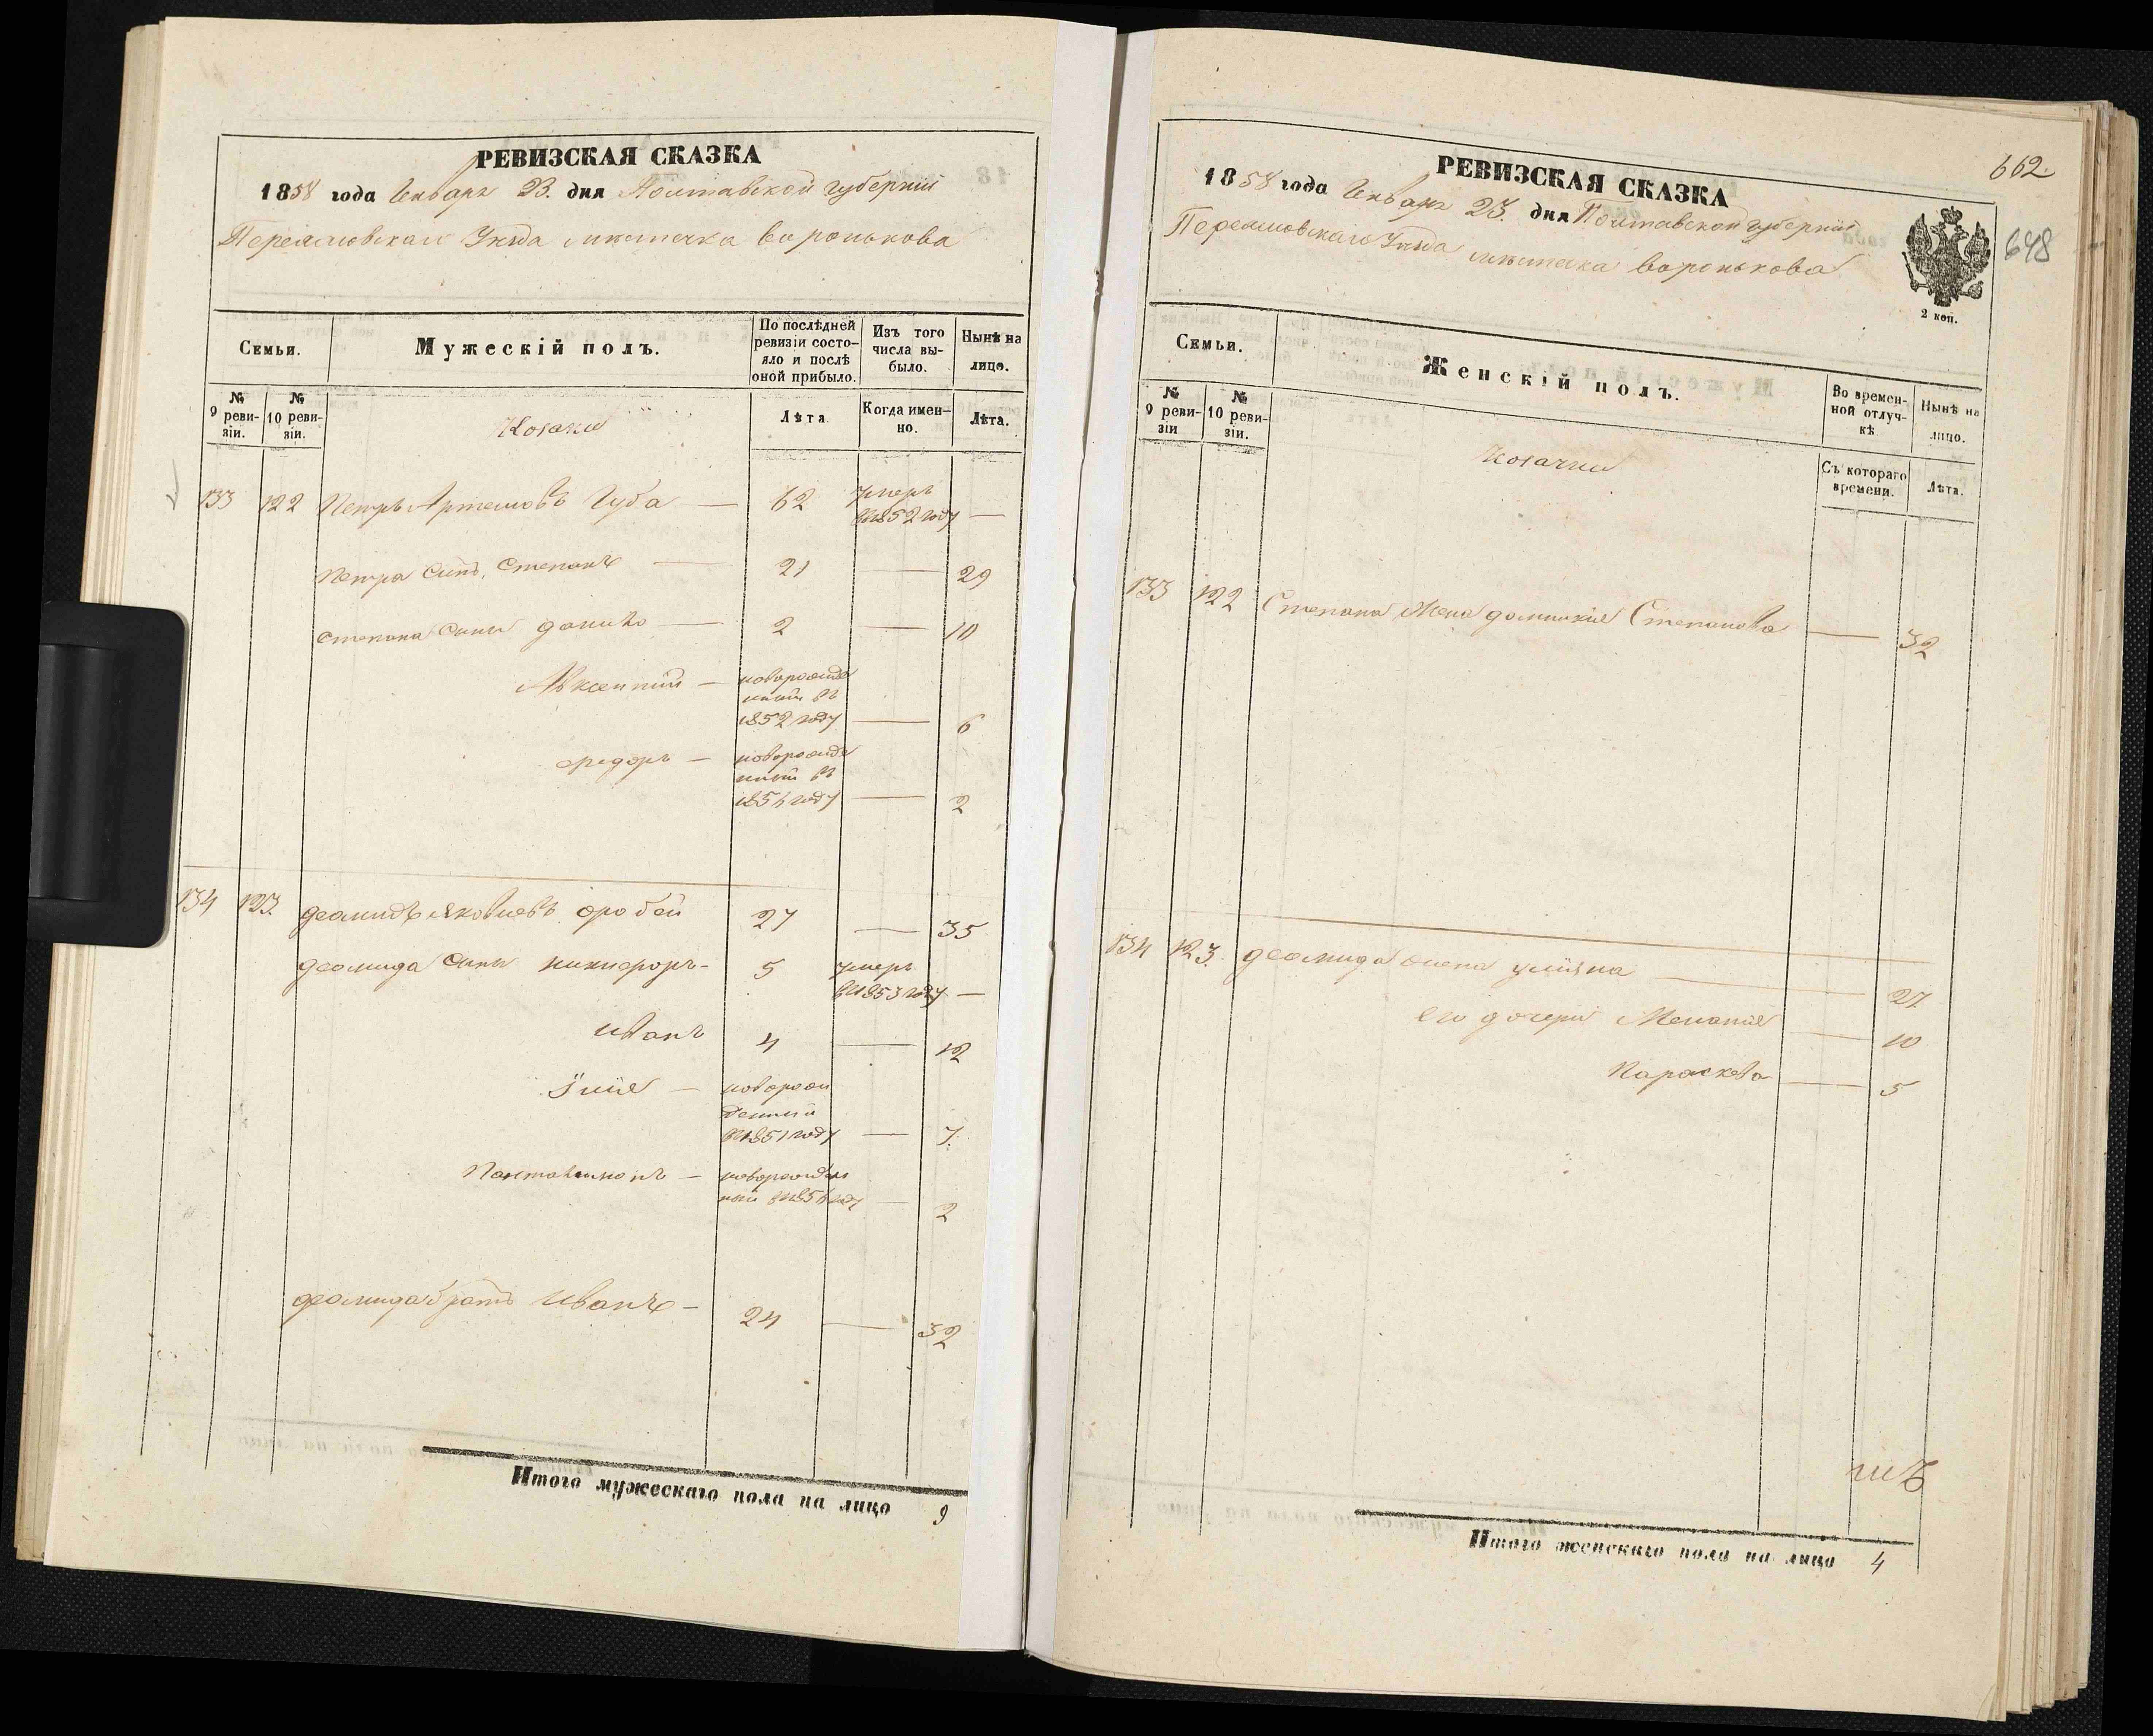 РЕВИЗСКАЯ СКАЗКА
1858 года Января 23. дня Полтавской губерніи
Переяславскаго Уезда местечка Воронькова
Семьи.
Мужескій полъ.
По послѣдней ревизіи состояло и послѣ оной прибыло.
Изъ того числа выбыло.
Нынѣ на лицо.
№ 9 ревизіи.
№ 10 ревизіи.
Козаки
Лѣта
Когда именно.
Лѣта.
133 122 Петръ Артемовъ Губа — 62 умеръ в 1852 году —
Петра сынъ Степанъ — 21 — 29
Степана сыны Данило — 2 — 10
Авксентий — новорожденный въ 1852 году — 6
Федоръ — новорожденный въ 1856 году — 2
134 123. Деомидъ Яковлевъ 27 — 35
Деомида сыны Никифоръ - 5 умеръ в 1853 году —
Иванъ 4 — 12
Илия — новорожденный в 1851 году — 7.
Пантелимонъ — новорожденный в 1856 году — 2
Деомида братъ Иванъ - 24 — 32
Итого мужескаго пола на лицо 9
662
648
РЕВИЗСКАЯ СКАЗКА
1858 года Января 23. дня Полтавской губерніи
Переяславскаго Уезда местечка Воронькова
2 коп.
Семьи.
Женскій полъ.
Во временной отлучкѣ
Нынѣ на лицо.
№ 9 ревизіи
№ 10 ревизіи.
Козачки
Съ котораго времени.
Лѣта.
133 122 Степана жена Домникия Степанова — 32
134 123. Деомида жена Улияна — 27.
его дочери Мелания — 10
Параскева — 5
Итого женскаго пола на лицо 4